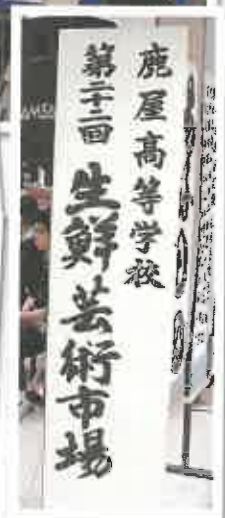 鹿屋高等学校
第二十二回 生鮮芸術市場